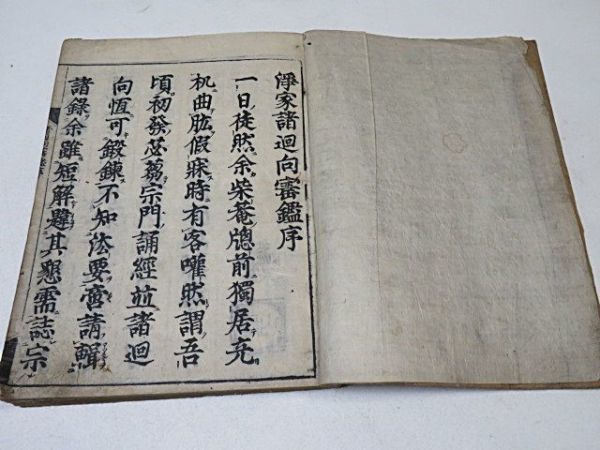 淨家諸迴向審鑑序
一日徒然余柴菴牕前獨居充
机曲肱假寐時有客嚾然謂吾
頃初發苾蒭宗門誦經並諸迴
向恆可鍛鍊不知法要寔請輯
諸錄余雖短解難其懇需誌宗